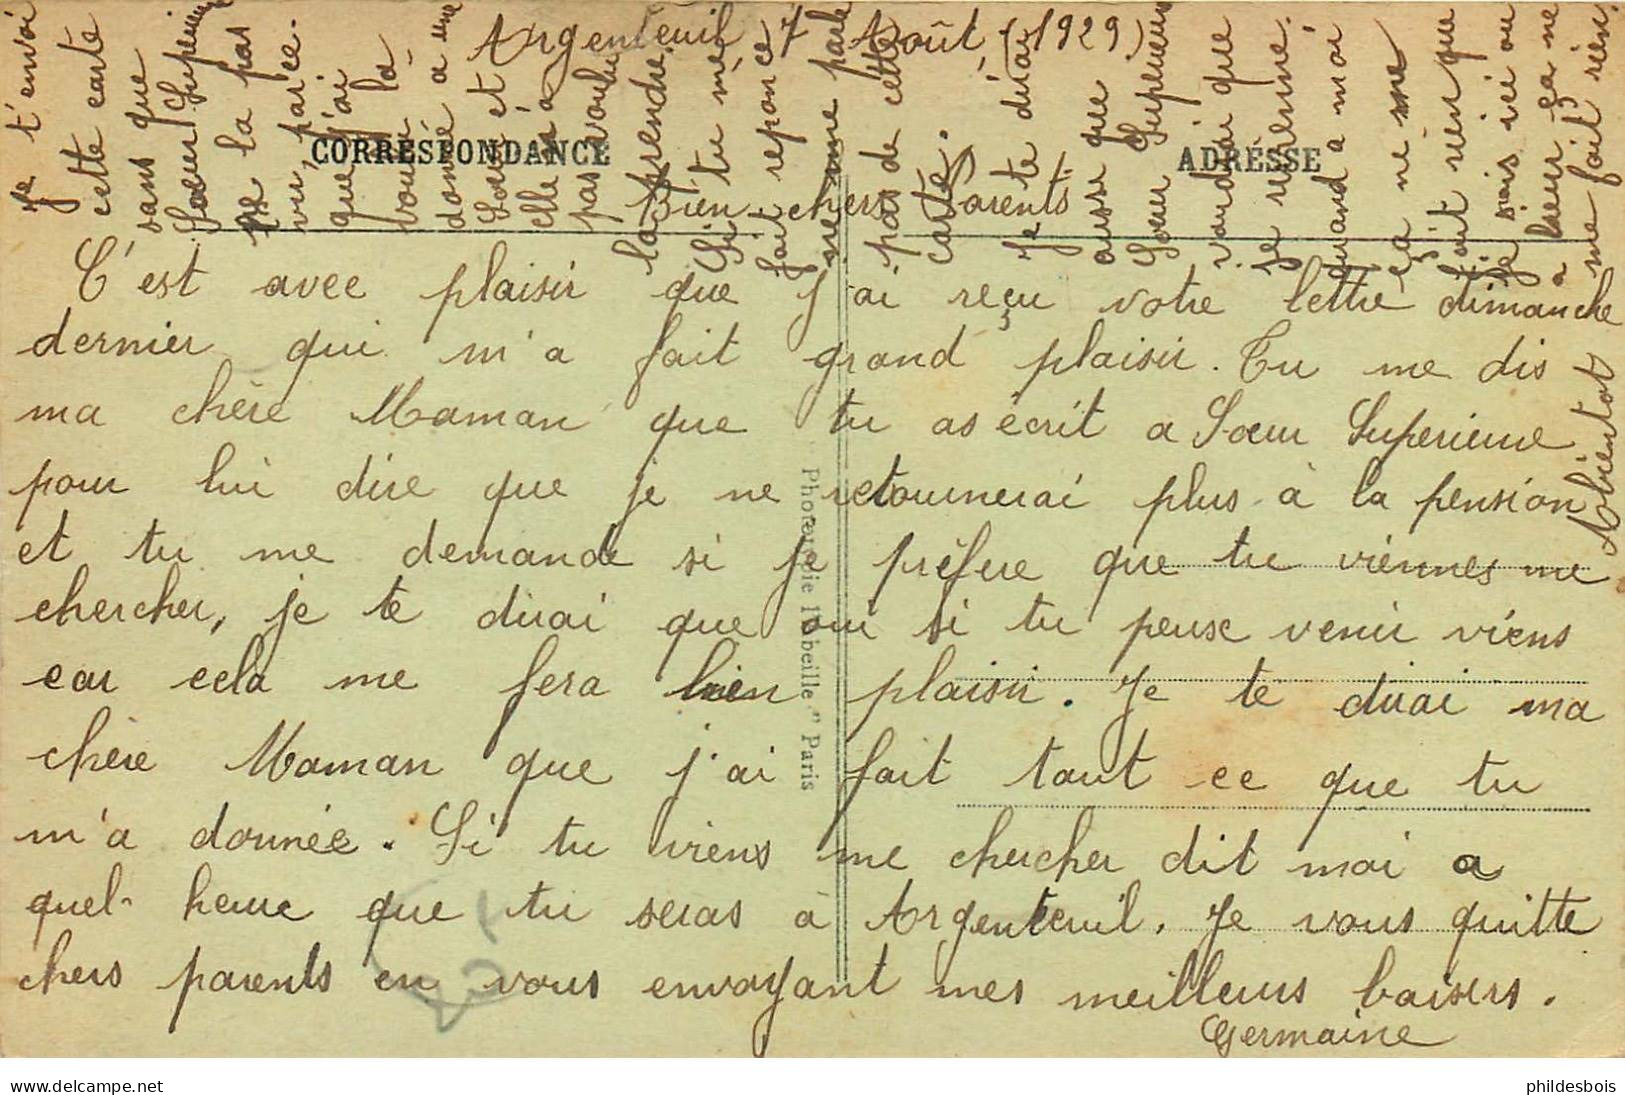 Argenteuil 7 Août (1929)
CORRESPONDANCE
ADRESSE
Bien chers Parents
C'est avec plaisir que j'ai reçu votre lettre dimanche
dernier qui m'a fait grand plaisir. Tu me dis
ma chère Maman que tu as écrit a Sœur Superieure
pour lui dire que je ne retournerai plus à la pension
et tu me demande si je préfere que tu viennes me
chercher, je te dirai que oui si tu peuse venir viens
car cela me fera bien plaisir. Je te dirai ma
chère Maman que j'ai fait tout ce que tu
m'a donnée. Si tu viens me chercher dit moi a
quel heure que tu seras à Argenteuil. Je vous quitte
chers parents en vous envoyant mes meilleurs baisers.
Germaine
je t'envoi
cette carte
sans que
Sœur Superieure
ne la pas
vu, parce-
que j'ai
voulu la
donné a une
Sœur et
elle n'a
pas voulu
la prendre.
Si tu me
fait reponce
ne me parle
pas de cette
carte.
Je te dirai
aussi que
Sœur Superieure
voudrai que
je revienne.
quand a moi
ça ne me
fait rien que
je sois ici ou
a lieur ça ne
me fait rien.
Abientot
Phototypie l'Abeille " Paris
www.delcampe.net
phildesbois